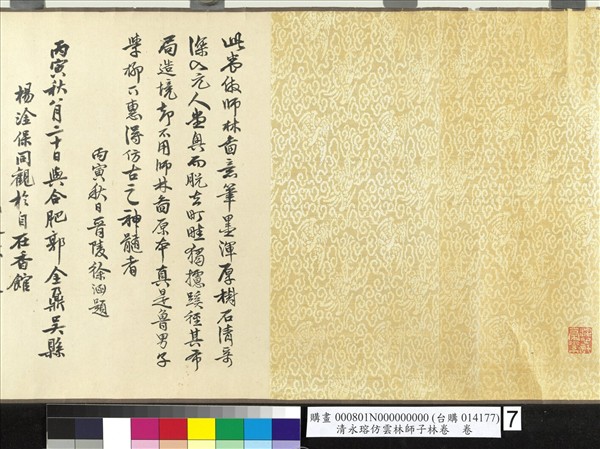 此卷倣師林畵意筆墨渾厚樹石清奇
深入元人堂奧而脫去町畦獨攄蹊徑其布
局造境却不用師林畵原本真是魯男子
學柳下惠得仿古之神髓者
丙寅秋日晉陵徐涵題
丙寅秋八月二十日與合肥郭全鼎吳縣
楊淦保同觀於自在香館
購畫 000801N000000000 (台購 014177)
清永瑢仿雲林師子林卷 卷
7